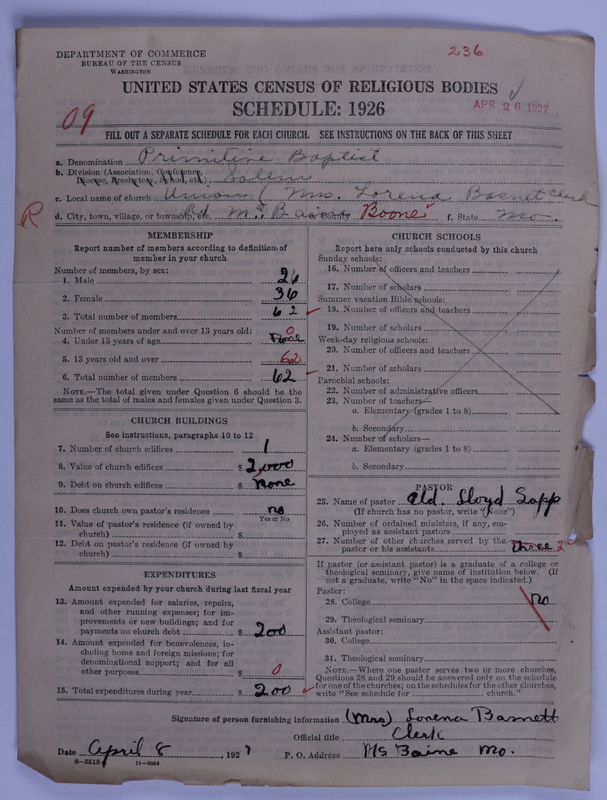 DEPARTMENT OF COMMERCE
BUREAU OF THE CENSUS
WASHINGTON
236
UNITED STATES CENSUS OF RELIGIOUS BODIES
SCHEDULE: 1926
APR 26 1927
09
FILL OUT A SEPARATE SCHEDULE FOR EACH CHURCH. SEE INSTRUCTIONS ON THE BACK OF THIS SHEET
a. Denomination Primitive Baptist
b. Division (Association, Conference, Diocese, Presbytery, Synod, etc.) Salem
c. Local name of church Union (Mrs. Lorena Basnett Clerk
R
d. City, town, village, or township Boone f. State Mo.
MEMBERSHIP
Report number of members according to definition of
member in your church
Number of members, by sex:
1. Male 26
2. Female 36
3. Total number of members 62
Number of members under and over 13 years old:
4. Under 13 years of age None 0
5. 13 years old and over 62
6. Total number of members 62
NOTE.—The total given under Question 6 should be
same as the total of males and females given under Question 3.
CHURCH BUILDINGS
See instructions, paragraphs 10 to 12
7. Number of church edifices 1
8. Value of church edifices $ 2,000
9. Debt on church edifices $ None
10. Does church own pastor's residence no
Yes or No
11. Value of pastor's residence (if owned by
church) $
12. Debt on pastor's residence (if owned by
church) $
EXPENDITURES
Amount expended by your church during last fiscal year
13. Amount expended for salaries, repairs,
and other running expenses; for im-
provements or new buildings; and for
payments on church debt $ 200
14. Amount expended for benevolences, in-
cluding home and foreign missions; for
denominational support; and for all
other purposes $ 0
15. Total expenditures during year $ 200
CHURCH SCHOOLS
Report here only schools conducted by this church
Sunday schools:
16. Number of officers and teachers
17. Number of scholars
Summer vacation Bible schools:
18. Number of officers and teachers
19. Number of scholars
Week-day religious schools:
20. Number of officers and teachers
21. Number of scholars
Parochial schools:
22. Number of administrative officers
23. Number of teachers—
a. Elementary (grades 1 to 8)
b. Secondary
24. Number of scholars—
a. Elementary (grades 1 to 8)
b. Secondary
PASTOR
25. Name of pastor Eld. Lloyd Sapp
(If church has no pastor, write "None")
26. Number of ordained ministers, if any, em-
ployed as assistant pastors
27. Number of other churches served by the
pastor or his assistants three 2
If pastor (or assistant pastor) is a graduate of a college or
theological seminary, give name of institution below. (If
not a graduate, write "No" in the space indicated.)
Pastor:
28. College No
29. Theological seminary
Assistant pastor:
30. College
31. Theological seminary
NOTE.—Where one pastor serves two or more churches,
Questions 28 and 29 should be answered only on the schedule
for one of the churches; on the schedules for the other churches,
write "See schedule for church."
Signature of person furnishing information (Mrs) Lorena Basnett
Official title Clerk
Date April 8, 1927 P. O. Address McBaine Mo.
8-5518 11-9084